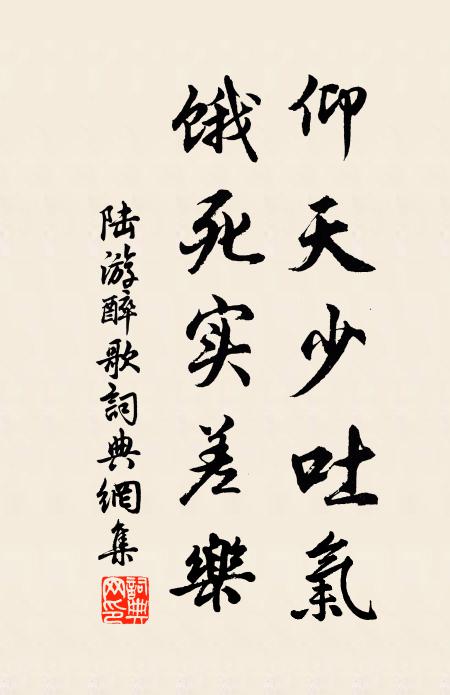 仰天少吐氣
餓死实差樂
陆游醉歌詞典網集
詞典网印